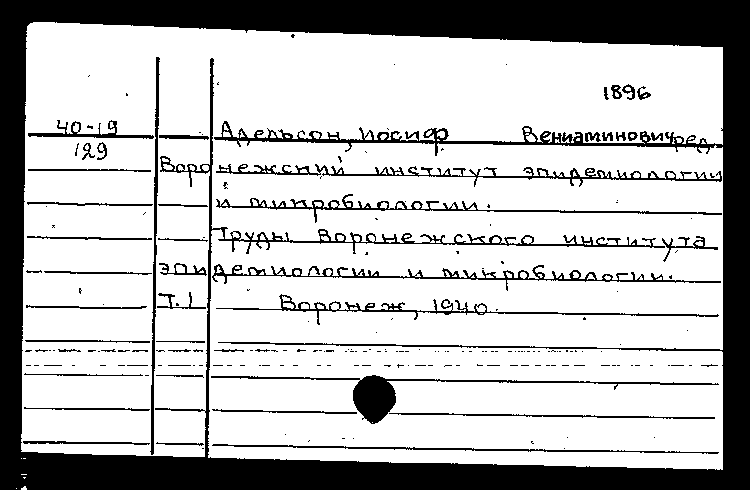 1896
40-19
129
Адельсон, Иосиф Вениаминович ред.
Воронежский институт эпидемиологии
и микробиологии.
Труды Воронежского института
эпидемиологии и микробиологии.
Т.1 Воронеж, 1940.